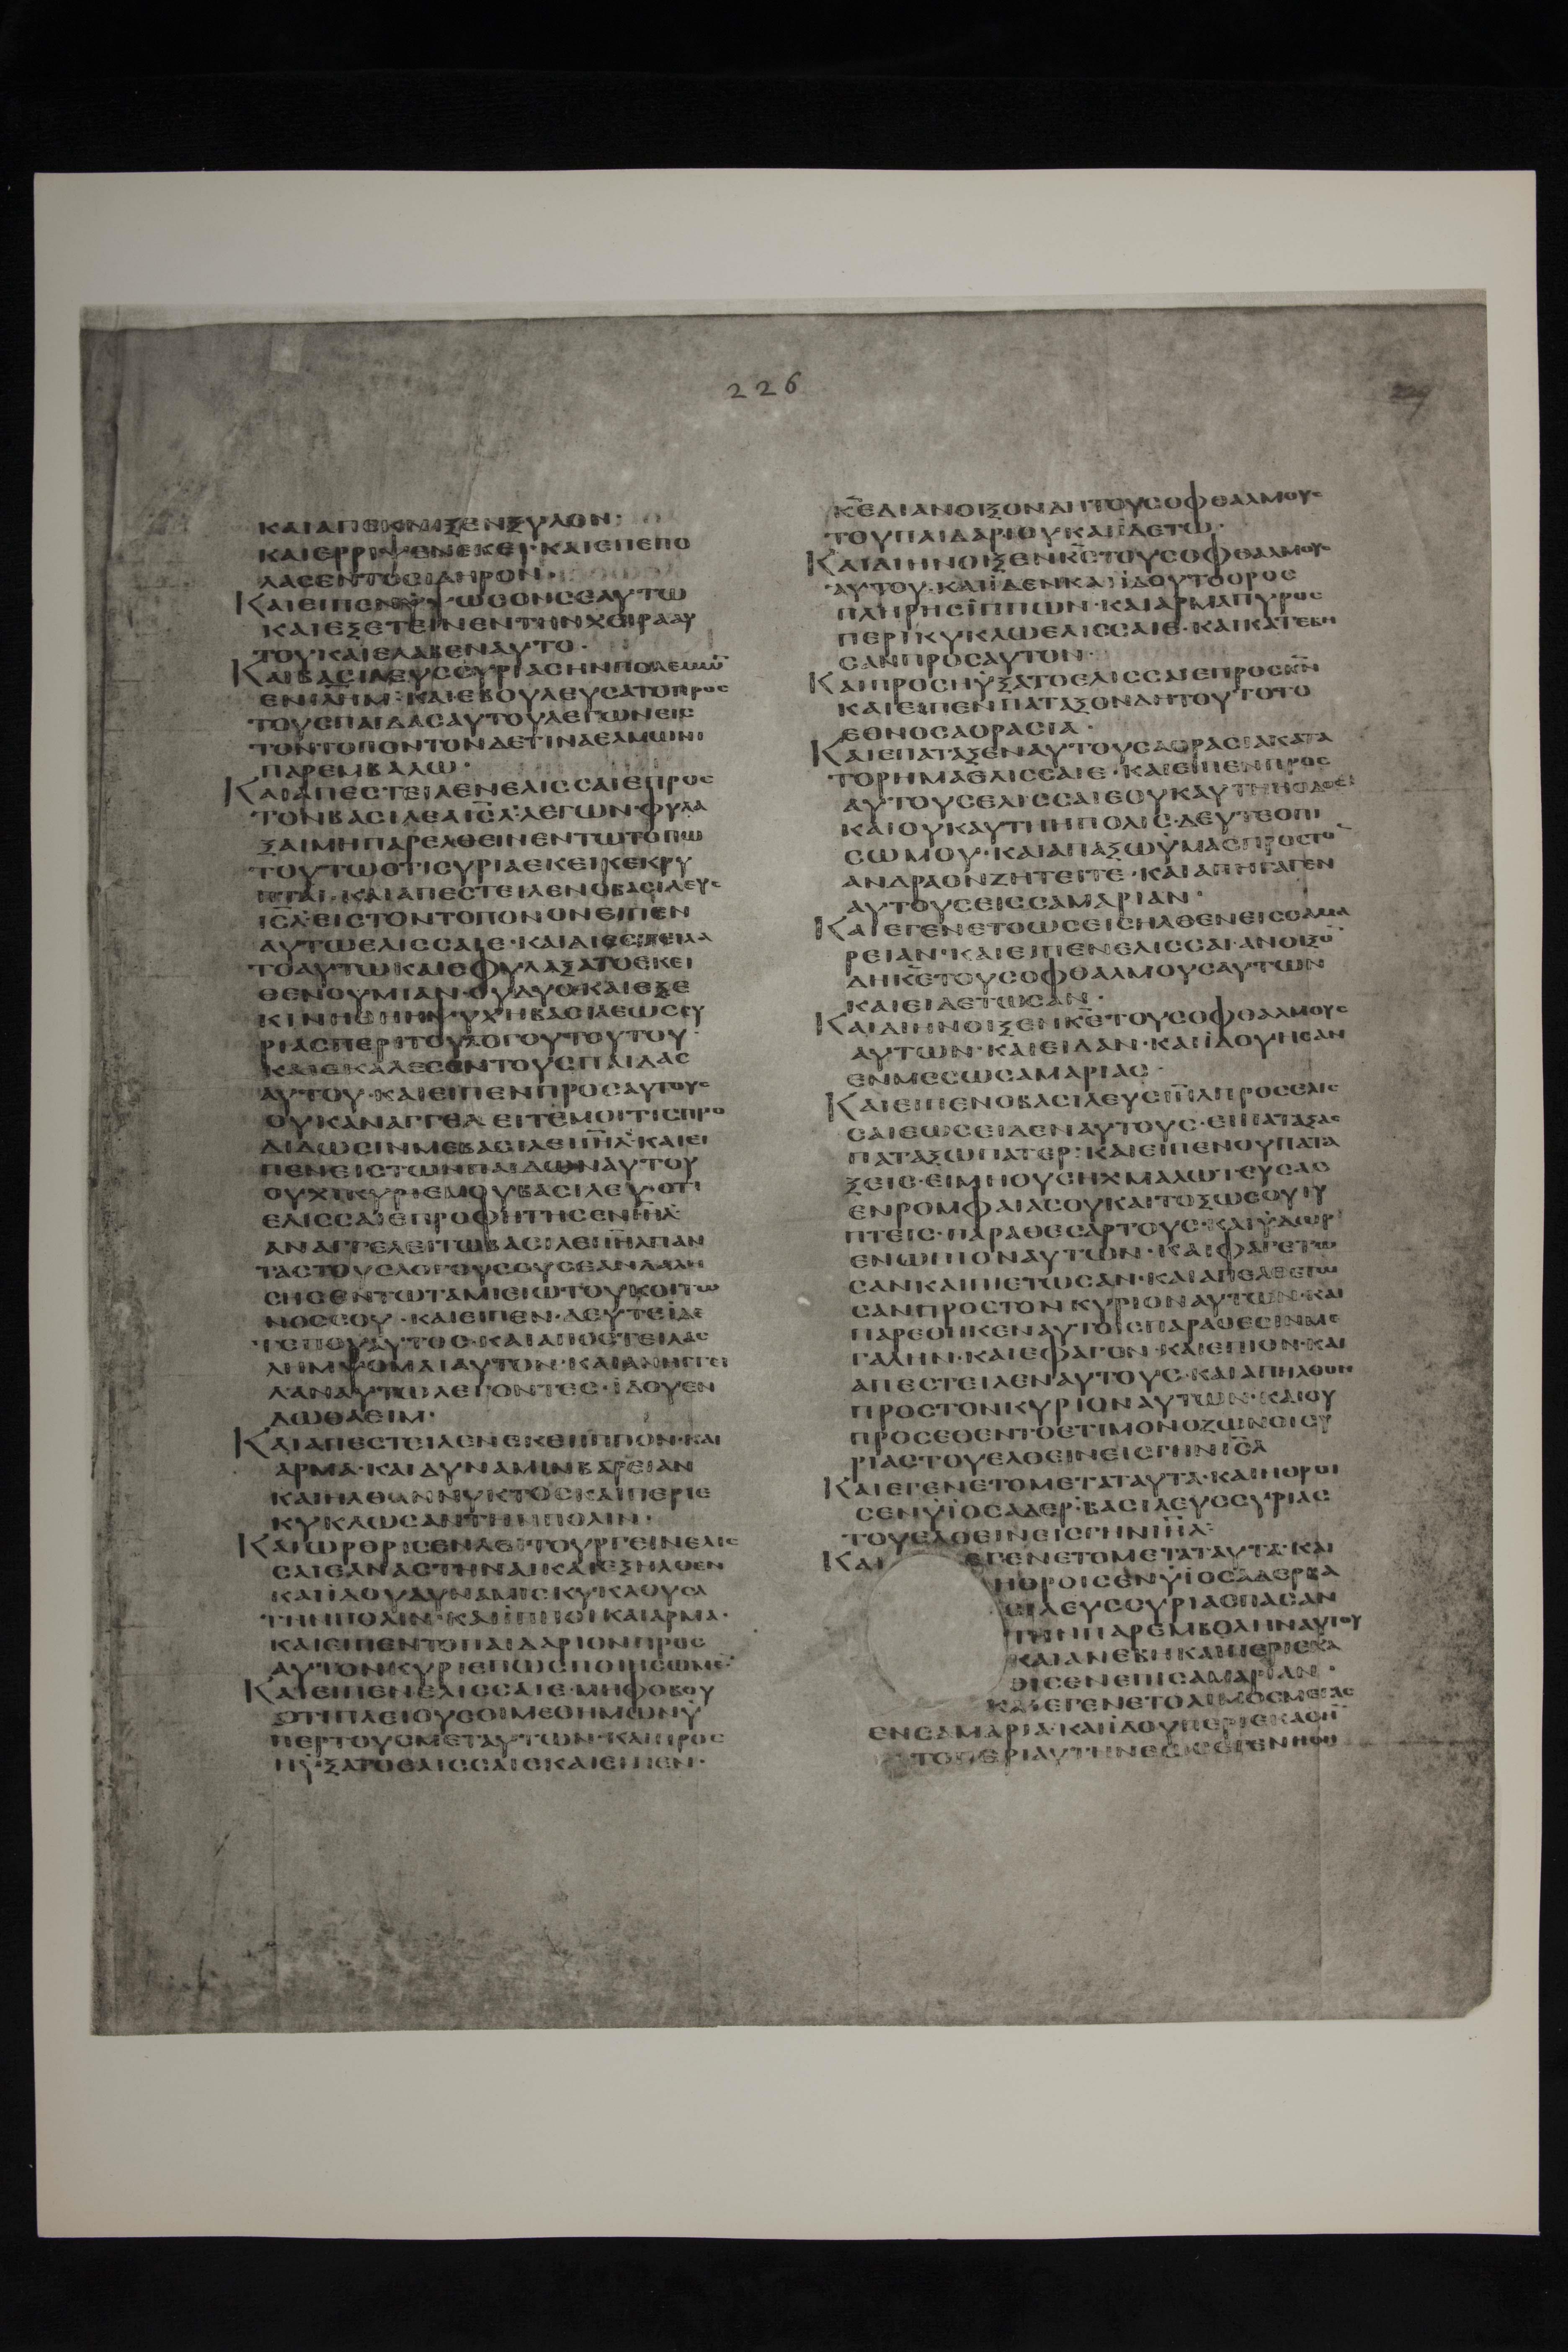 226
227
ΚΑΙΑΠΕΚΝΙΞΕΝΞΥΛΟΝ·
ΚΑΙΕΡΡΙΨΕΝΕΚΕΙ·ΚΑΙΕΠΕΠΟ
ΛΑΣΕΝΤΟΣΙΔΗΡΟΝ·
ΚΑΙΕΙΠΕΝ ΥΨΩΣΟΝΣΕΑΥΤΩ
ΚΑΙΕΞΕΤΕΙΝΕΝΤΗΝΧΕΙΡΑΑΥ
ΤΟΥΚΑΙΕΛΑΒΕΝΑΥΤΟ·
ΚΑΙΒΑΣΙΛΕΥΣΣΥΡΙΑΣΗΝΠΟΛΕΜΩ̅
ΕΝΙΗ̅Λ̅Μ·ΚΑΙΕΒΟΥΛΕΥΣΑΤΟΠΡΟΣ
ΤΟΥΣΠΑΙΔΑΣΑΥΤΟΥΛΕΓΩΝΕΙΣ
ΤΟΝΤΟΠΟΝΤΟΝΔΕΤΙΝΑΕΛΜΩΝΙ
ΠΑΡΕΜΒΑΛΩ·
ΚΑΙΑΠΕΣΤΕΙΛΕΝΕΛΙΣΣΑΙΕΠΡΟΣ
ΤΟΝΒΑΣΙΛΕΑΙΣ̅Λ·ΛΕΓΩΝ·ΦΥΛΑ
ΞΑΙΜΗΠΑΡΕΛΘΕΙΝΕΝΤΩΤΟΠΩ
ΤΟΥΤΩΟΤΙΣΥΡΙΑΕΚΕΙΚΕΚΡΥ
ΠΤΑΙ·ΚΑΙΑΠΕΣΤΕΙΛΕΝΟΒΑΣΙΛΕΥΣ
ΙΣ̅Λ·ΕΙΣΤΟΝΤΟΠΟΝΟΝΕΙΠΕΝ
ΑΥΤΩΕΛΙΣΣΑΙΕ·ΚΑΙΔΙΕΣΤΕΙΛΑ
ΤΟΑΥΤΩΚΑΙΕΦΥΛΑΞΑΤΟΕΚΕΙ
ΘΕΝΟΥΜΙΑΝ·ΟΥΔΥΟ·ΚΑΙΕΞΕ
ΚΙΝΗΘΗΗΨΥΧΗΒΑΣΙΛΕΩΣΣΥ
ΡΙΑΣΠΕΡΙΤΟΥΛΟΓΟΥΤΟΥΤΟΥ·
ΚΑΙΕΚΑΛΕΣΕΝΤΟΥΣΠΑΙΔΑΣ
ΑΥΤΟΥ·ΚΑΙΕΙΠΕΝΠΡΟΣΑΥΤΟΥΣ
ΟΥΚΑΝΑΓΓΕΛΕΙΤΕΜΟΙΤΙΣΠΡΟ
ΔΙΔΩΣΙΝΜΕΒΑΣΙΛΕΙΙΗ̅Λ·ΚΑΙΕΙ
ΠΕΝΕΙΣΤΩΝΠΑΙΔΩΝΑΥΤΟΥ
ΟΥΧΙΚΥΡΙΕΜΟΥΒΑΣΙΛΕΥ·ΟΤΙ
ΕΛΙΣΣΑΙΕΠΡΟΦΗΤΗΣΕΝΙΗ̅Λ·
ΑΝΑΓΓΕΛΕΙΤΩΒΑΣΙΛΕΙΙΗ̅ΛΠΑΝ
ΤΑΣΤΟΥΣΛΟΓΟΥΣΟΥΣΕΑΝΛΑΛΗ
ΣΗΣΕΝΤΩΤΑΜΙΕΙΩΤΟΥΚΟΙΤΩ
ΝΟΣΣΟΥ·ΚΑΙΕΙΠΕΝ·ΔΕΥΤΕΙΔΕ
ΤΕΠΟΥΟΥΤΟΣ·ΚΑΙΑΠΟΣΤΕΙΛΑΣ
ΛΗΜΨΟΜΑΙΑΥΤΟΝ·ΚΑΙΑΝΗΓΓΕΙ
ΛΑΝΑΥΤΩΛΕΓΟΝΤΕΣ·ΙΔΟΥΕΝ
ΔΩΘΑΕΙΜ·
ΚΑΙΑΠΕΣΤΕΙΛΕΝΕΚΕΙΙΠΠΟΝ·ΚΑΙ
ΑΡΜΑ·ΚΑΙΔΥΝΑΜΙΝΒΑΡΕΙΑΝ
ΚΑΙΗΛΘΑΝΝΥΚΤΟΣΚΑΙΠΕΡΙΕ
ΚΥΚΛΩΣΑΝΤΗΝΠΟΛΙΝ·
ΚΑΙΩΡΘΡΙΣΕΝΛΕΙΤΟΥΡΓΕΙΝΕΛΙΣ
ΣΑΙΕΑΝΑΣΤΗΝΑΙΚΑΙΕΞΗΛΘΕΝ
ΚΑΙΙΔΟΥΔΥΝΑΜΙΣΚΥΚΛΟΥΣΑ
ΤΗΝΠΟΛΙΝ·ΚΑΙΙΠΠΟΙΚΑΙΑΡΜΑ·
ΚΑΙΕΙΠΕΝΤΟΠΑΙΔΑΡΙΟΝΠΡΟΣ
ΑΥΤΟΝΚΥΡΙΕΠΩΣΠΟΙΗΣΩΜΕ̅·
ΚΑΙΕΙΠΕΝΕΛΙΣΣΑΙΕ·ΜΗΦΟΒΟΥ
ΟΤΙΠΛΕΙΟΥΣΟΙΜΕΘΗΜΩΝΥ
ΠΕΡΤΟΥΣΜΕΤΑΥΤΩΝ·ΚΑΙΠΡΟΣ
ΗΥΞΑΤΟΕΛΙΣΣΑΙΕΚΑΙΕΙΠΕΝ·
Κ̅Ε̅ΔΙΑΝΟΙΞΟΝΔΗΤΟΥΣΟΦΘΑΛΜΟΥΣ
ΤΟΥΠΑΙΔΑΡΙΟΥΚΑΙΙΔΕΤΩ·
ΚΑΙΔΙΗΝΟΙΞΕΝΚ̅Σ̅ΤΟΥΣΟΦΘΑΛΜΟΥΣ
ΑΥΤΟΥ·ΚΑΙΙΔΕΝΚΑΙΙΔΟΥΤΟΟΡΟΣ
ΠΛΗΡΗΣΙΠΠΩΝ·ΚΑΙΑΡΜΑΠΥΡΟΣ
ΠΕΡΙΚΥΚΛΩΕΛΙΣΣΑΙΕ·ΚΑΙΚΑΤΕΒΗ
ΣΑΝΠΡΟΣΑΥΤΟΝ·
ΚΑΙΠΡΟΣΗΥΞΑΤΟΕΛΙΣΣΑΙΕΠΡΟΣΚ̅Ν̅
ΚΑΙΕΙΠΕΝΠΑΤΑΞΟΝΔΗΤΟΥΤΟΤΟ
ΕΘΝΟΣΑΟΡΑΣΙΑ·
ΚΑΙΕΠΑΤΑΞΕΝΑΥΤΟΥΣΑΟΡΑΣΙΑΚΑΤΑ
ΤΟΡΗΜΑΕΛΙΣΣΑΙΕ·ΚΑΙΕΙΠΕΝΠΡΟΣ
ΑΥΤΟΥΣΕΛΙΣΣΑΙΕΟΥΚΑΥΤΗΗΟΔΟΣ
ΚΑΙΟΥΚΑΥΤΗΗΠΟΛΙΣ·ΔΕΥΤΕΟΠΙ
ΣΩΜΟΥ·ΚΑΙΑΠΑΞΩΥΜΑΣΠΡΟΣΤΟ̅
ΑΝΔΡΑΟΝΖΗΤΕΙΤΕ·ΚΑΙΑΠΗΓΑΓΕΝ
ΑΥΤΟΥΣΕΙΣΣΑΜΑΡΙΑΝ·
ΚΑΙΕΓΕΝΕΤΟΩΣΕΙΣΗΛΘΕΝΕΙΣΣΑΜΑ
ΡΕΙΑΝ·ΚΑΙΕΙΠΕΝΕΛΙΣΣΑΙ·ΑΝΟΙΞΟ̅
ΔΗΚ̅Ε̅ΤΟΥΣΟΦΘΑΛΜΟΥΣΑΥΤΩΝ
ΚΑΙΕΙΔΕΤΩΣΑΝ·
ΚΑΙΔΙΗΝΟΙΞΕΝΚ̅Σ̅ΤΟΥΣΟΦΘΑΛΜΟΥΣ
ΑΥΤΩΝ·ΚΑΙΕΙΔΑΝ·ΚΑΙΙΔΟΥΗΣΑΝ
ΕΝΜΕΣΩΣΑΜΑΡΙΑΣ·
ΚΑΙΕΙΠΕΝΟΒΑΣΙΛΕΥΣΙΗ̅ΛΠΡΟΣΕΛΙΣ
ΣΑΙΕΩΣΕΙΔΕΝΑΥΤΟΥΣ·ΕΙΠΑΤΑΞΑΣ
ΠΑΤΑΞΩΠΑΤΕΡ:ΚΑΙΕΙΠΕΝΟΥΠΑΤΑ
ΞΕΙΣ·ΕΙΜΗΟΥΣΗΧΜΑΛΩΤΕΥΣΑΣ
ΕΝΡΟΜΦΑΙΑΣΟΥΚΑΙΤΟΞΩΣΟΥΤΥ
ΠΤΕΙΣ·ΠΑΡΑΘΕΣΑΡΤΟΥΣ·ΚΑΙΥΔΩΡ
ΕΝΩΠΙΟΝΑΥΤΩΝ·ΚΑΙΦΑΓΕΤΩ
ΣΑΝΚΑΙΠΙΕΤΩΣΑΝ·ΚΑΙΑΠΕΛΘΕΤΩ
ΣΑΝΠΡΟΣΤΟΝΚΥΡΙΟΝΑΥΤΩΝ·ΚΑΙ
ΠΑΡΕΘΗΚΕΝΑΥΤΟΙΣΠΑΡΑΘΕΣΙΝΜΕ
ΓΑΛΗΝ·ΚΑΙΕΦΑΓΟΝ·ΚΑΙΕΠΙΟΝ·ΚΑΙ
ΑΠΕΣΤΕΙΛΕΝΑΥΤΟΥΣ·ΚΑΙΑΠΗΛΘΟΝ
ΠΡΟΣΤΟΝΚΥΡΙΟΝΑΥΤΩΝ·ΚΑΙΟΥ
ΠΡΟΣΕΘΕΝΤΟΕΤΙΜΟΝΟΖΩΝΟΙΣΥ
ΡΙΑΣΤΟΥΕΛΘΕΙΝΕΙΣΓΗΝΙΣ̅Λ
ΚΑΙΕΓΕΝΕΤΟΜΕΤΑΤΑΥΤΑ·ΚΑΙΗΘΡΟΙ
ΣΕΝΥΙΟΣΑΔΕΡ·ΒΑΣΙΛΕΥΣΣΥΡΙΑΣ
ΤΟΥΕΛΘΕΙΝΕΙΣΓΗΝΙΗ̅Λ·
ΚΑΙ ΕΓΕΝΕΤΟΜΕΤΑΤΑΥΤΑ·ΚΑΙ
ΗΘΡΟΙΣΕΝΥΙΟΣΑΔΕΡΒΑ
ΣΙΛΕΥΣΣΥΡΙΑΣΠΑΣΑΝ
ΤΗΝΠΑΡΕΜΒΟΛΗΝΑΥΤΟΥ
ΚΑΙΑΝΕΒΗΚΑΙΠΕΡΙΕΚΑ
ΘΙΣΕΝΕΠΙΣΑΜΑΡΙΑΝ·
ΚΑΙΕΓΕΝΕΤΟΛΙΜΟΣΜΕΓΑΣ
ΕΝΣΑΜΑΡΙΑ·ΚΑΙΙΔΟΥΠΕΡΙΕΚΑΘΗ̅
ΤΟΠΕΡΙΑΥΤΗΝΕΩΣΕΓΕΝΗΘΗ